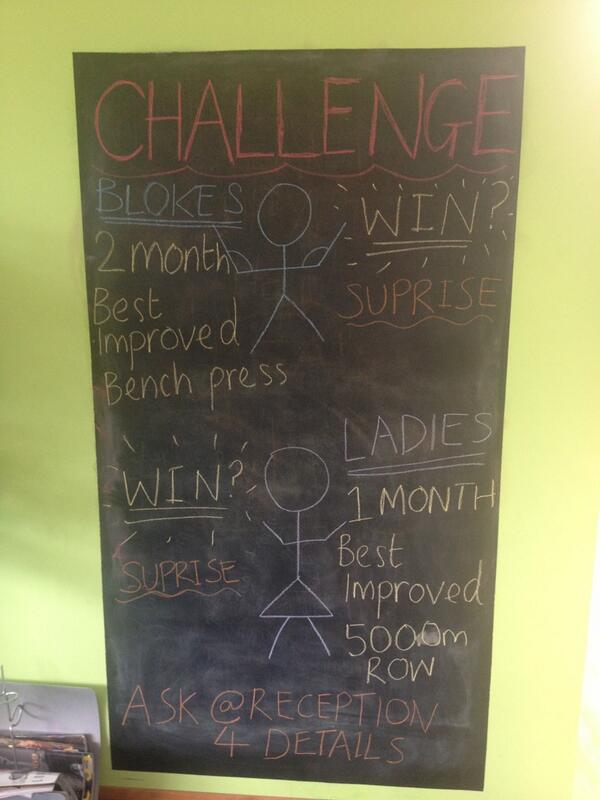 CHALLENGE
BLOKES
2 month
Best
Improved
Bench press
WIN?
SUPRISE
WIN?
SUPRISE
LADIES
1 MONTH
Best
Improved
5000m
ROW
ASK @RECEPTION
4 DETAILS